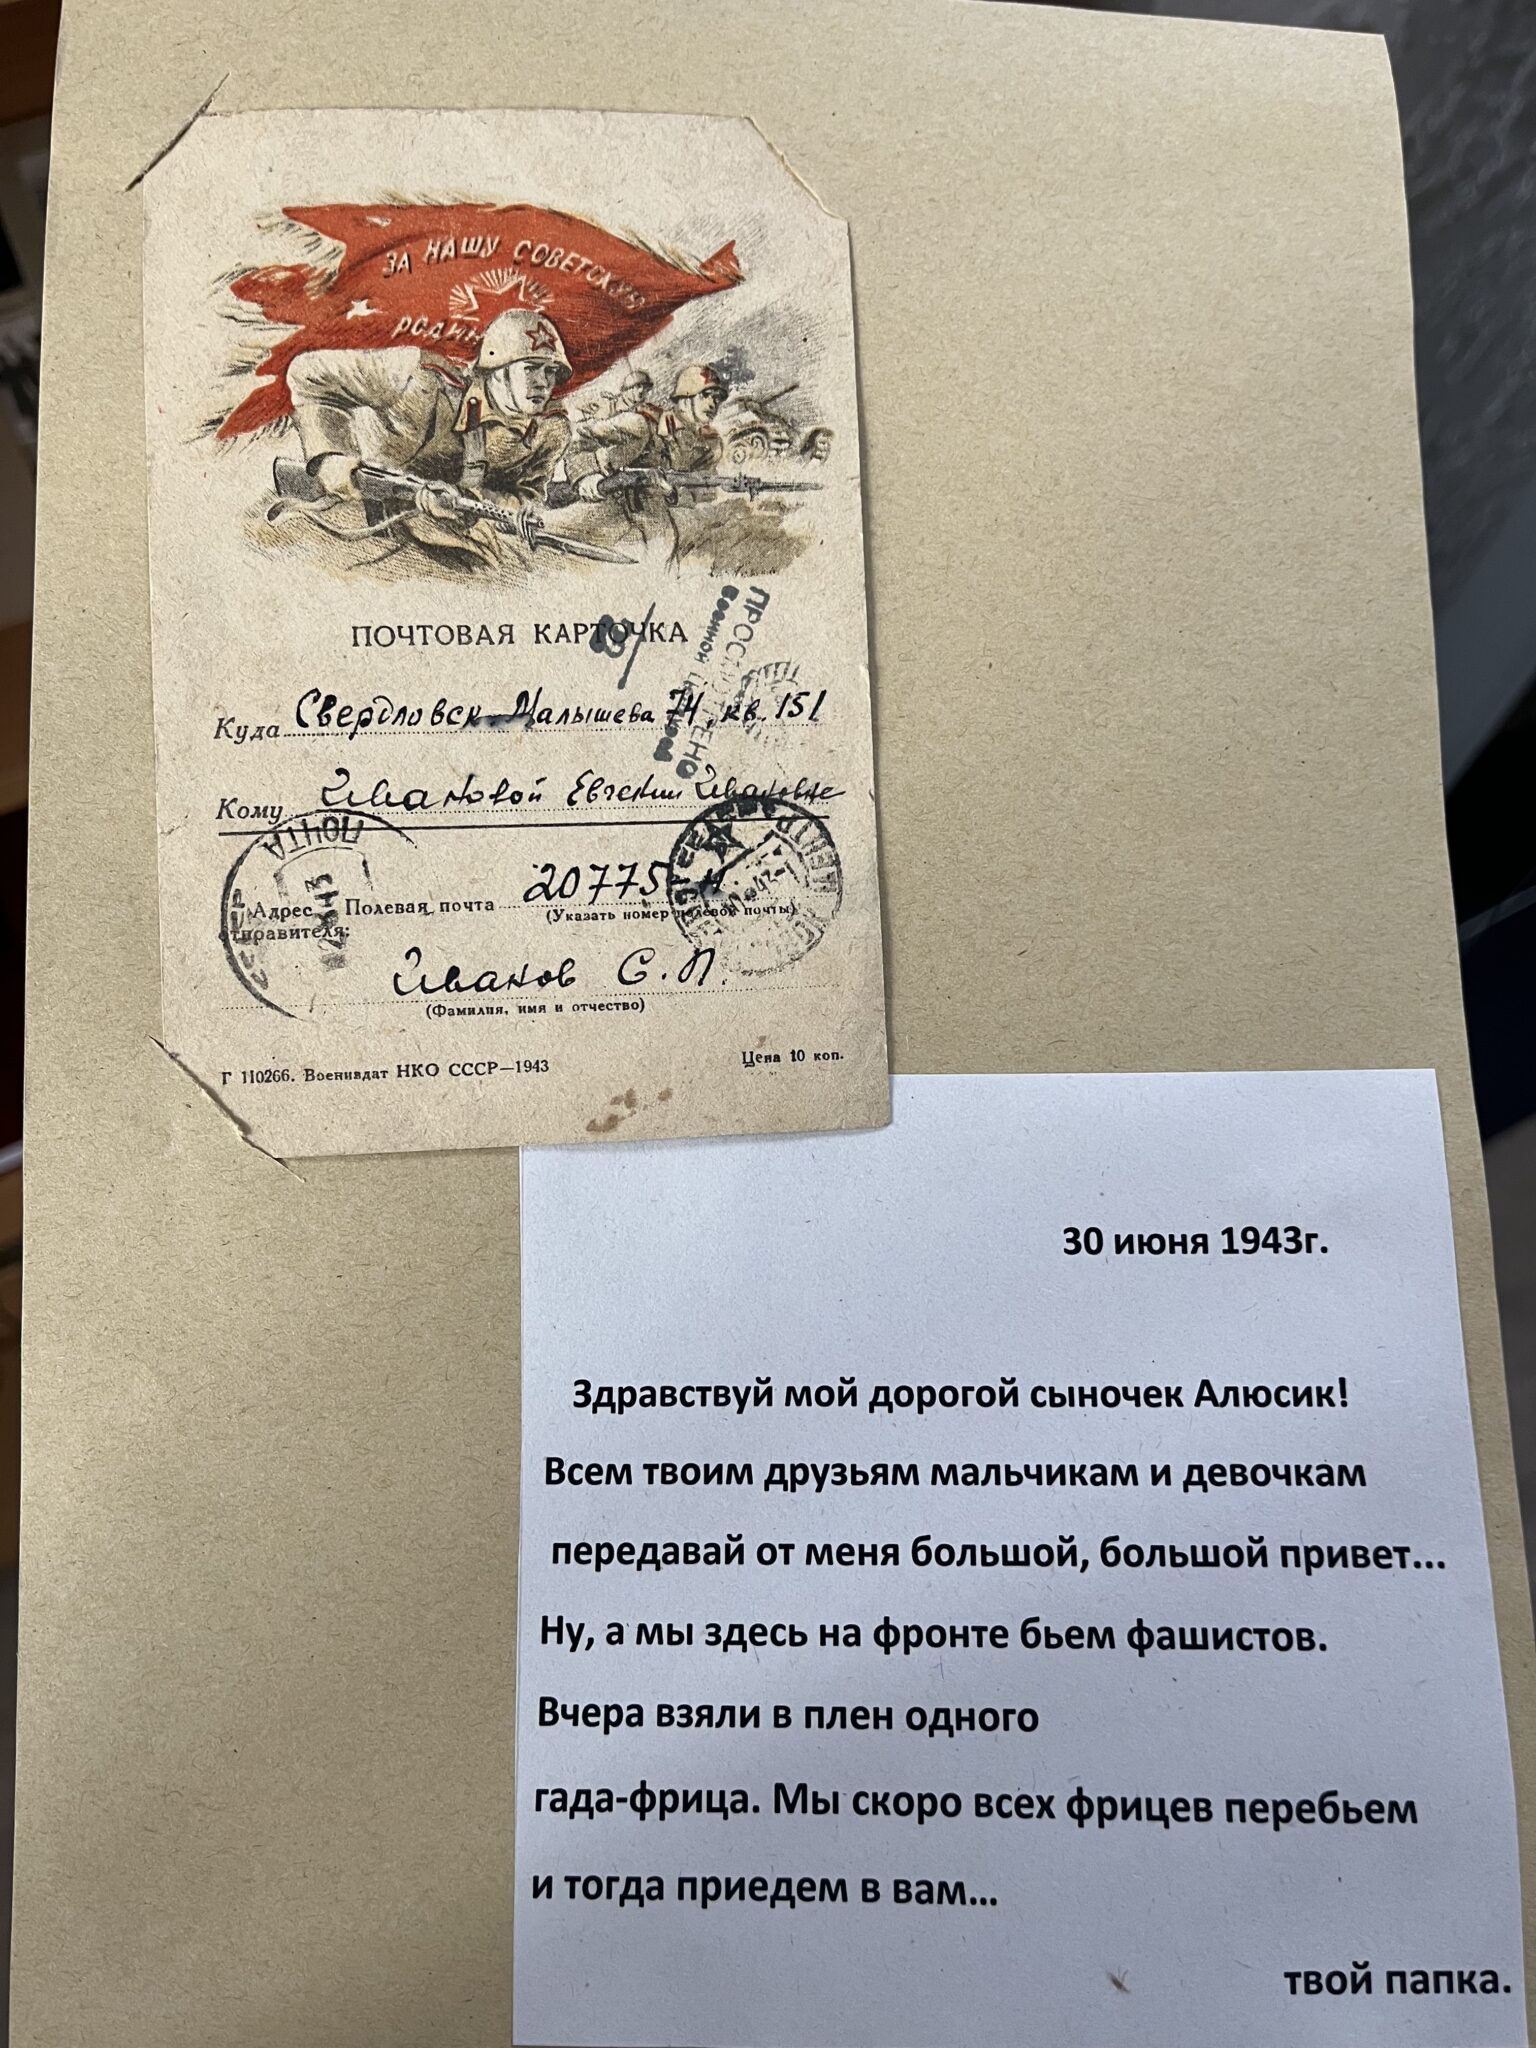 ЗА НАШУ СОВЕТСКУЮ
РОДИН
ПОЧТОВАЯ КАРТОЧКА
ПРОСМОТРЕНО
Военной Цензурой
Куда Свердловск Малышева 74, кв. 151
Кому Ивановой Евгении Ивановне
ПОЧТА
Адрес отправителя:
Полевая почта 20775
(Указать номер полевой почты)
Иванов С. П.
(Фамилия, имя и отчество)
Г 110266. Воениздат НКО СССР—1943
Цена 10 коп.
30 июня 1943г.
Здравствуй мой дорогой сыночек Алюсик!
Всем твоим друзьям мальчикам и девочкам
передавай от меня большой, большой привет...
Ну, а мы здесь на фронте бьем фашистов.
Вчера взяли в плен одного
гада-фрица. Мы скоро всех фрицев перебьем
и тогда приедем в вам...
твой папка.